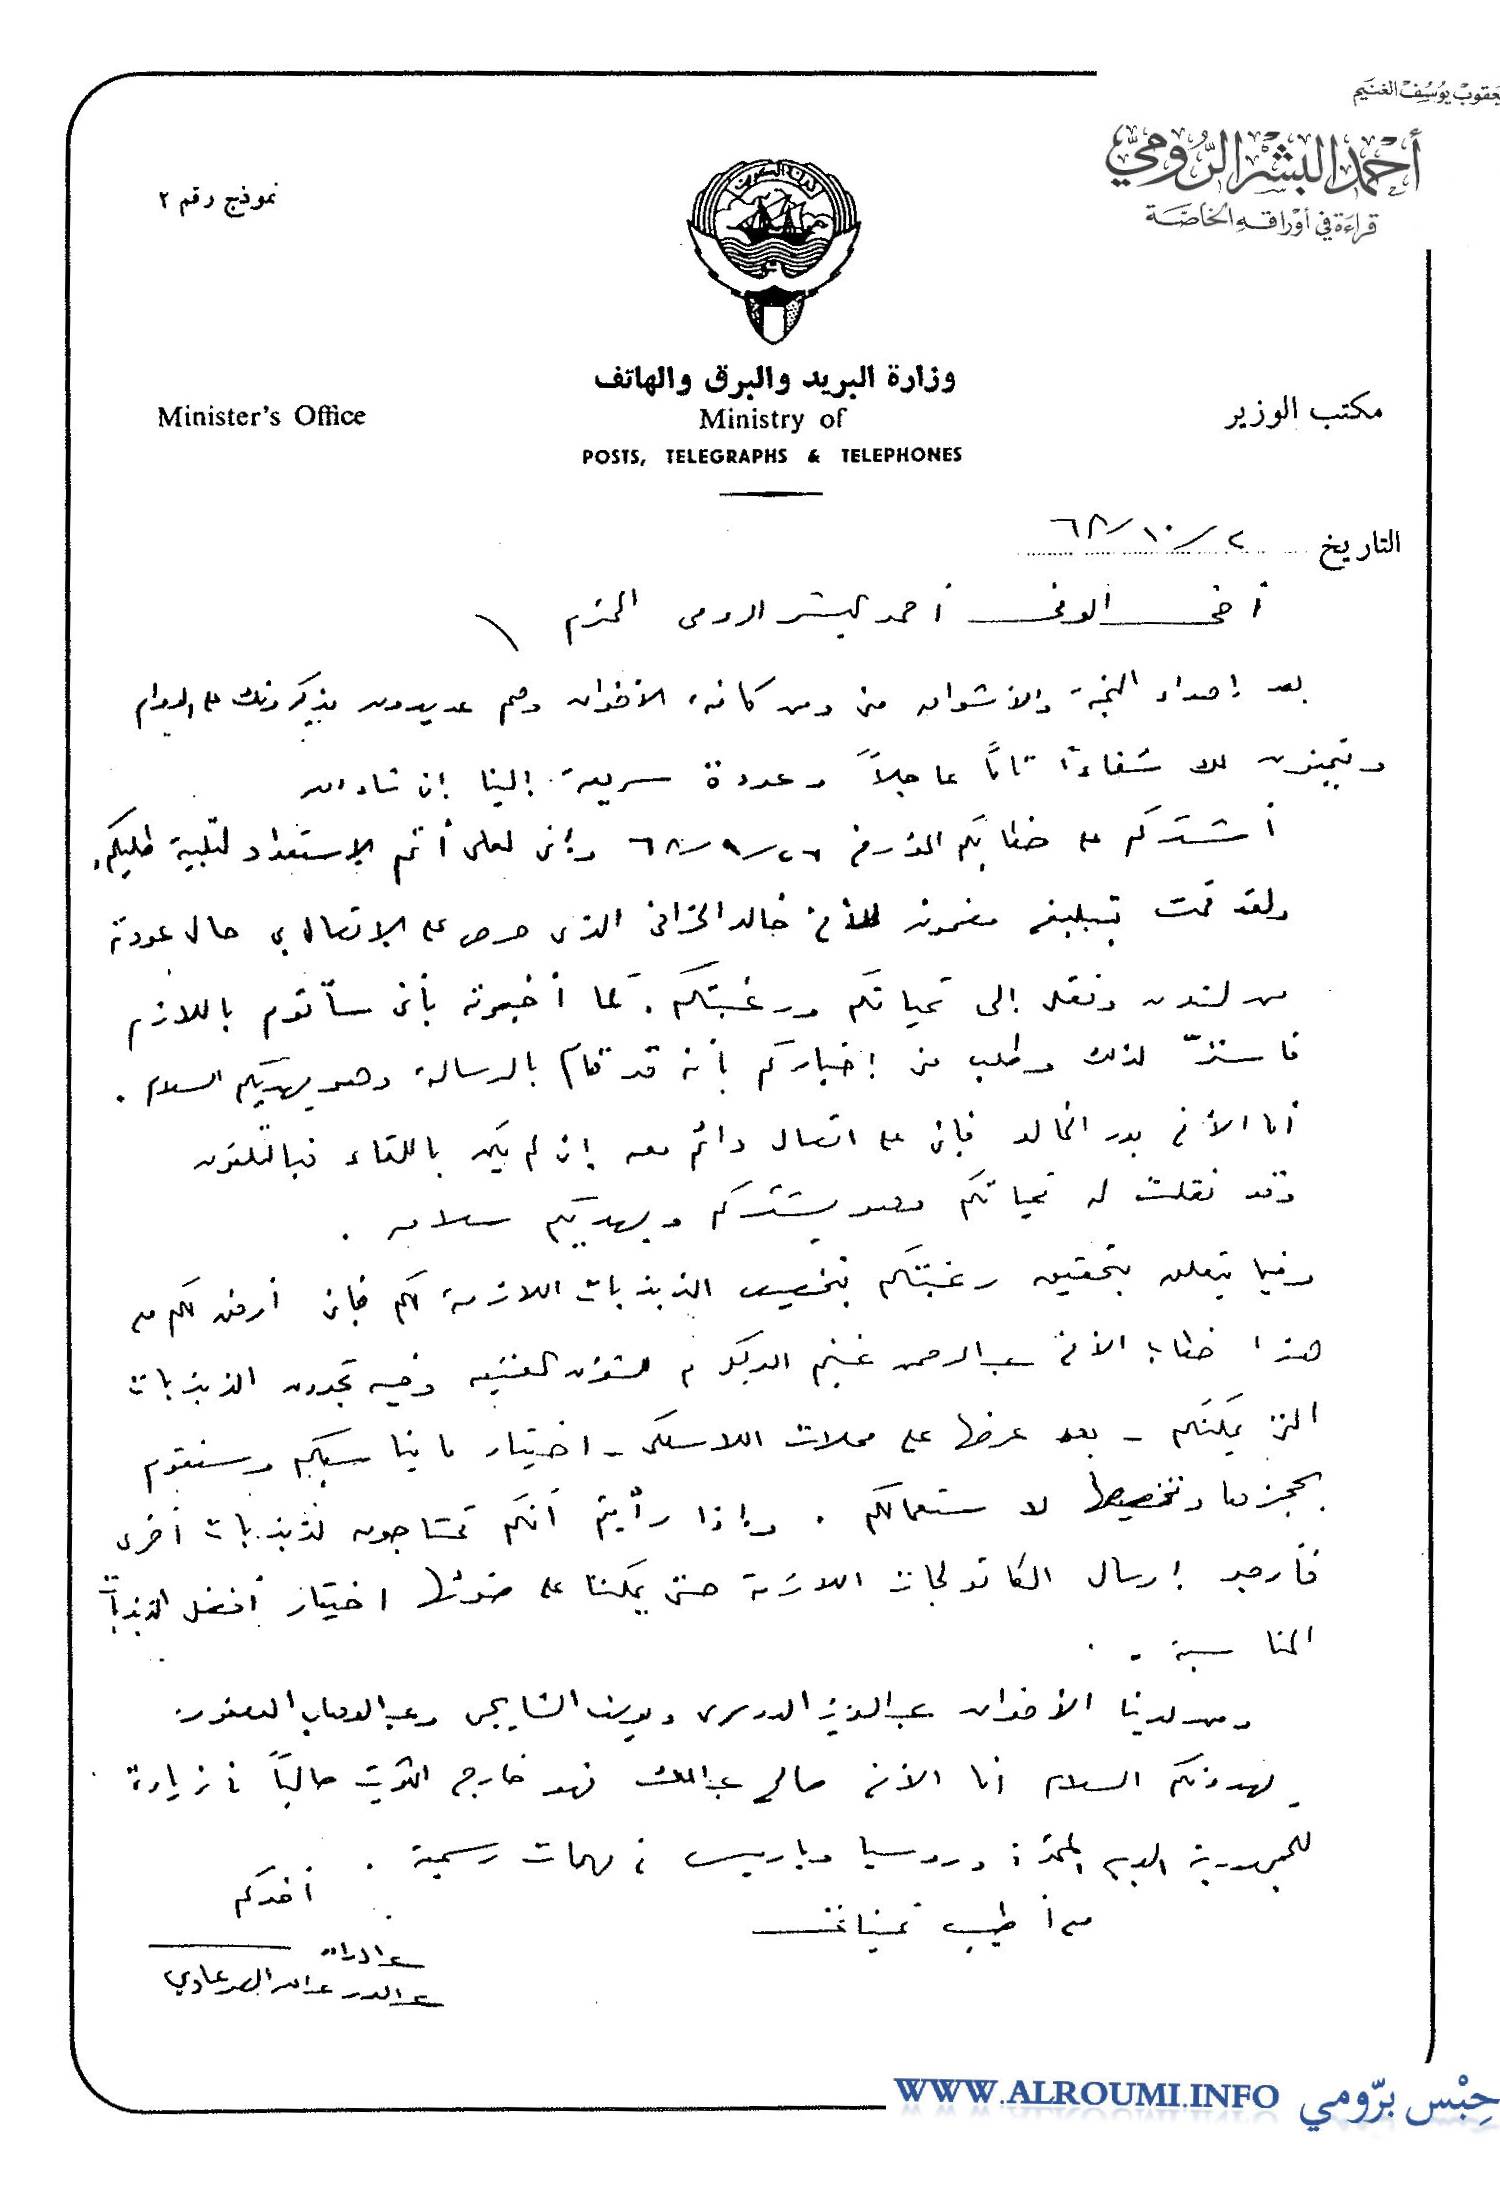 يعقوب يوسف الغنيم
أحمد البشر الرومي
قراءة في أوراقه الخاصة
نموذج رقم ٢
وزارة البريد والبرق والهاتف
Minister's Office
Ministry of
مكتب الوزير
POSTS, TELEGRAPHS & TELEPHONES
التاريخ ٢/١٠/٦٨
أخي الوفي أحمد البشر الرومي المحترم
بعد إهداء التحية والأشواق مني ومن كافة الأخوان وهم عديدون يذكرونك على الدوام
ويتمنون لك شفاءً تامًا عاجلاً وعودة سريعة إلينا إن شاء الله
أشكركم على خطابكم المؤرخ ٢٦/٩/٦٨ وإني لعلى أتم الاستعداد لتلبية طلبكم
ولقد قمت بتبليغ مضمونه للأخ خالد الخرافي الذي حرص على الاتصال بي حال عودته
من لندن ونقل إلي تحياتكم ورغبتكم . كما أخبرته بأني سأقوم باللازم
فاستر لذلك وطلب مني إخباركم بأنه قد قام بالرسالة وهو يهديكم السلام .
أما الأخ بدر الخالد فإني على اتصال دائم معه إن لم يكن باللقاء فبالتلفون
وقد نقلت له تحياتكم وهو يشكركم ويهديكم سلامه .
وفيما يتعلق بتحقيق رغبتكم بتخصيص الذبذبات اللازمة لكم فإني أرفق لكم مع
هذا خطاب الأخ عبدالرحمن غنيم الوكيل م للشؤون الفنية وفيه تجدون الذبذبات
التي يمكنكم - بعد عرضها على محلات اللاسلكي - اختيار ما يناسبكم وسنقوم
بحجزها وتخصيصها لاستعمالكم . وإذا رأيتم أنكم تحتاجون لذبذبات أخرى
فأرجو إرسال الكاتولجات اللازمة حتى يمكننا على ضوئها اختيار أفضل الذبذبات
المناسبة .
ومن لدينا الأخوان عبدالعزيز الدوسري ويوسف الشايجي وعبدالوهاب العصفور
يهدونكم السلام أما الأخ صالح عبدالملك فهو خارج الكويت حالياً في زيارة
للجمهورية العربية المتحدة وروسيا وباريس في مهمات رسمية .
مع أطيب تمنياتي
أخوكم
WWW.ALROUMI.INFO حبس برّومي